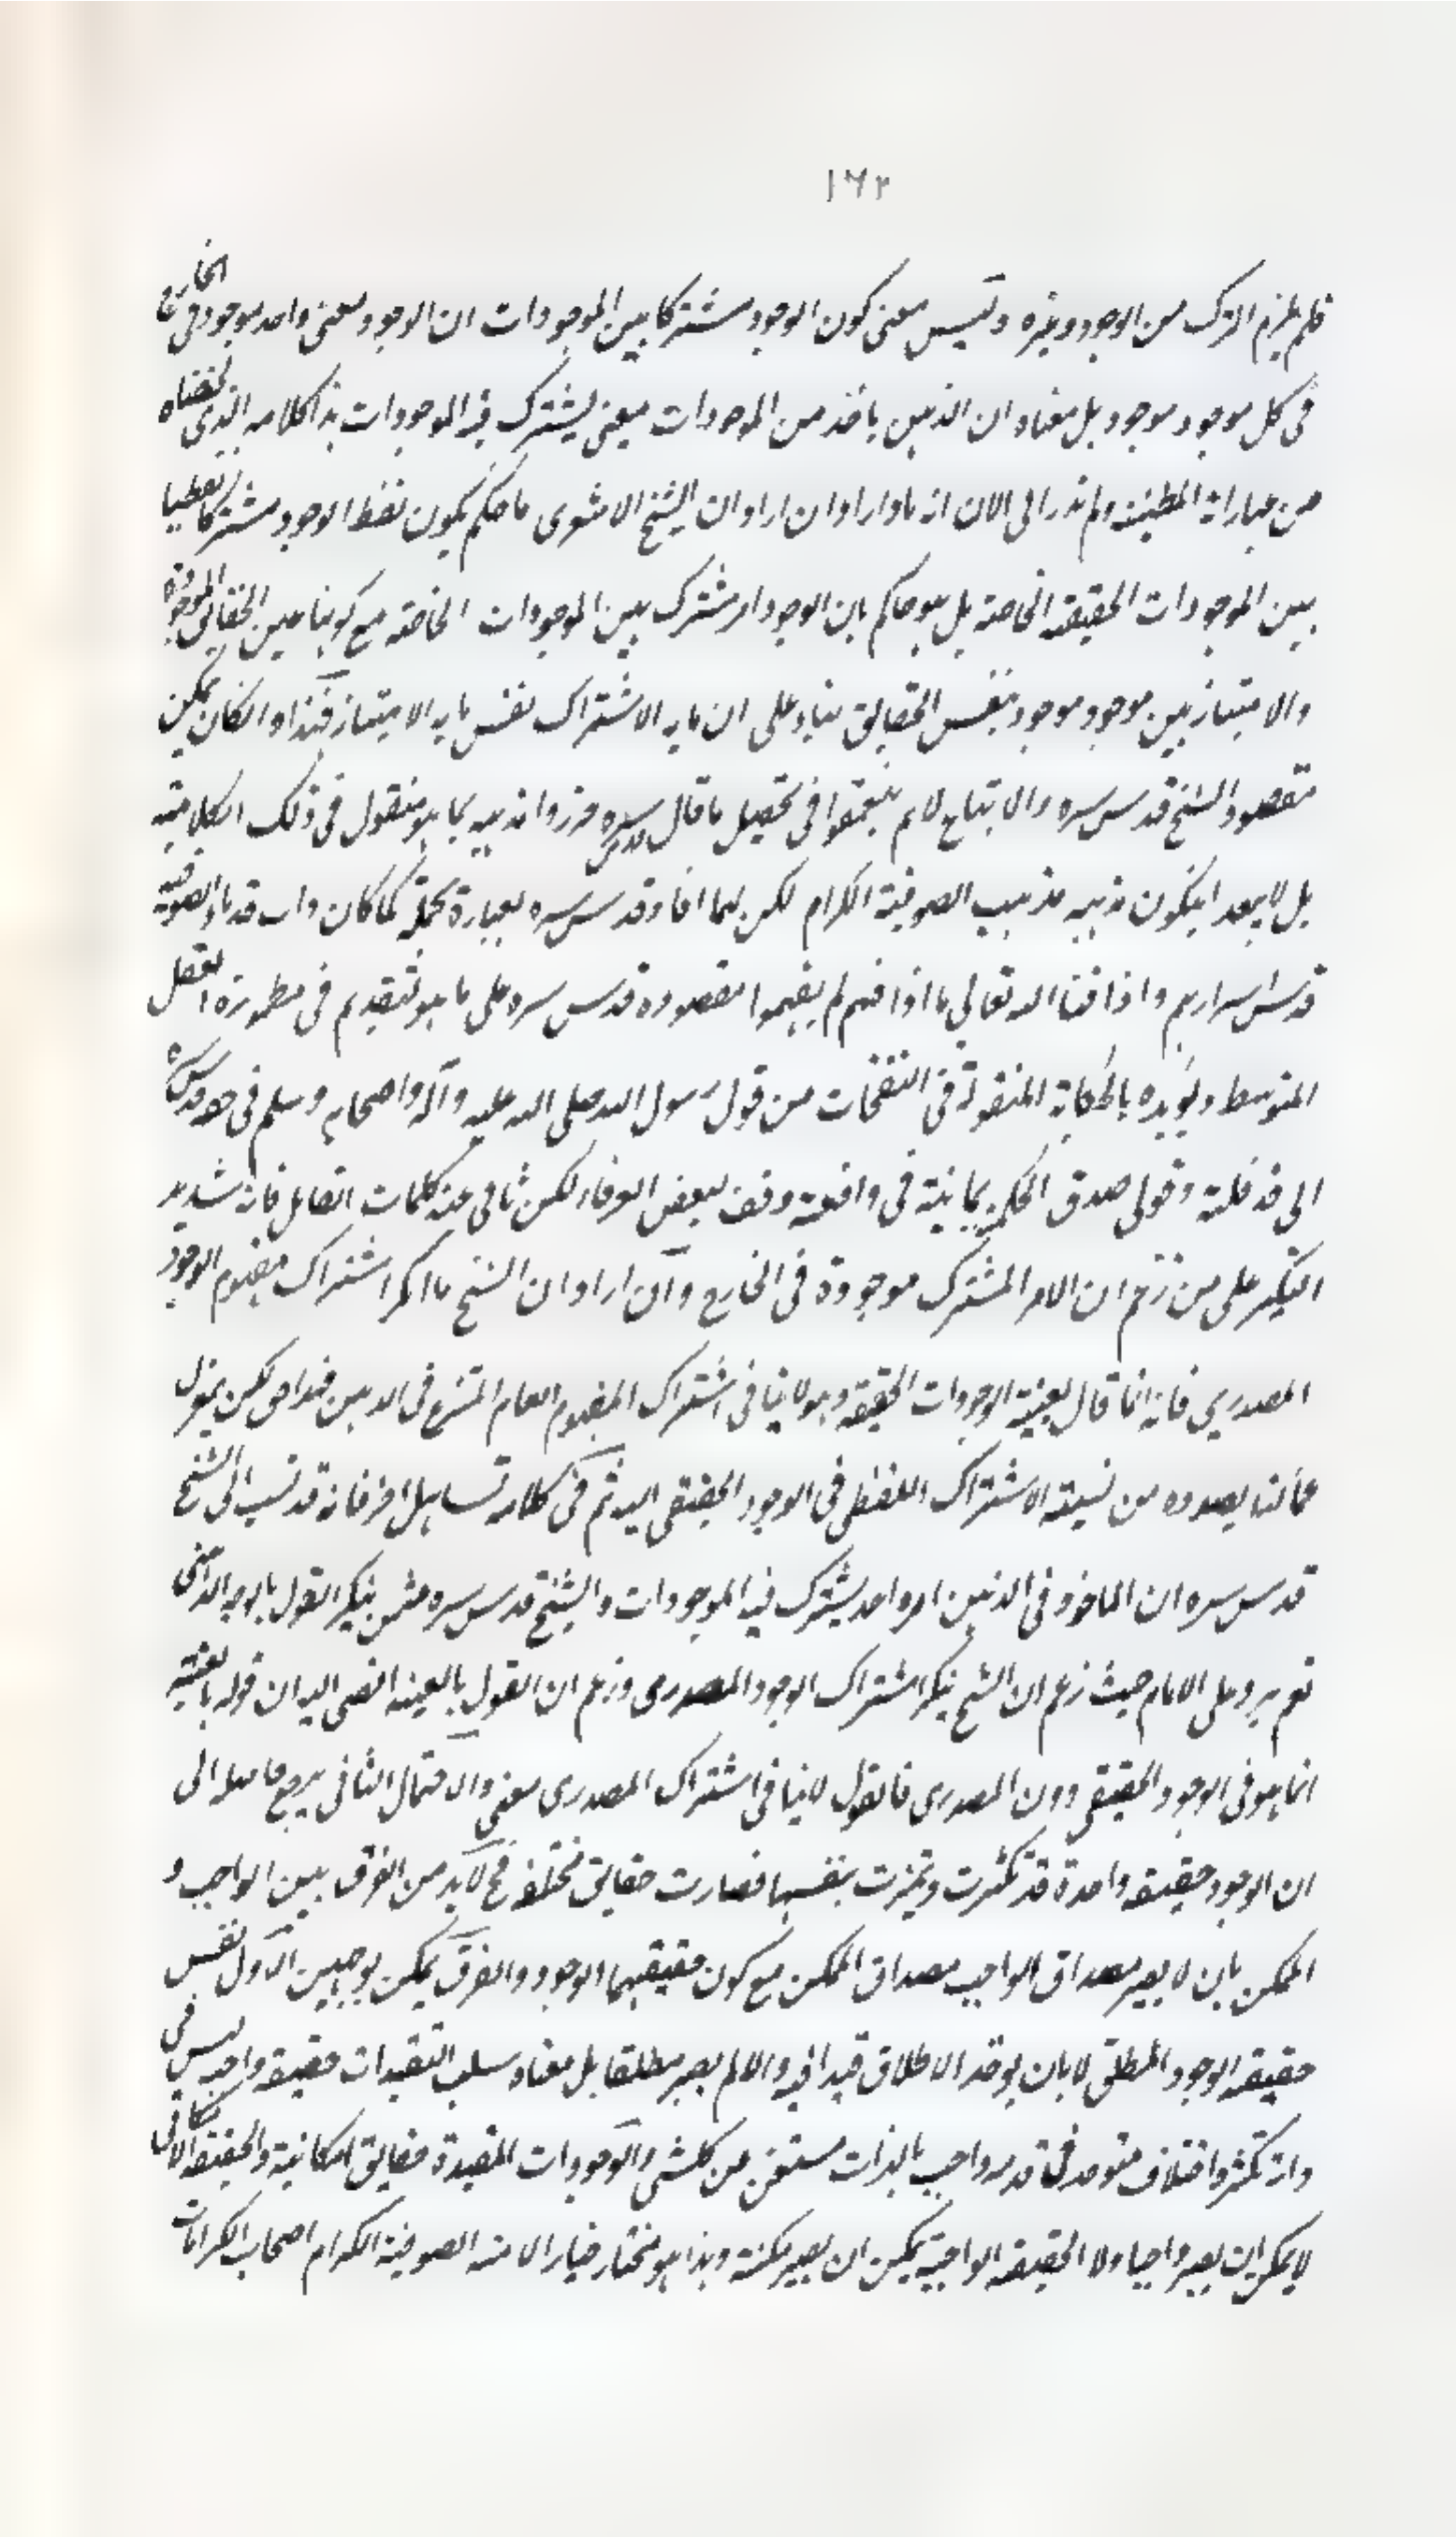 ١٦٢
فلم يلزم الترك من الوجود وغيره وليس معنى كون الوجود مشتركا بين الموجودات ان الوجود معنى واحد موجود في الخارج
في كل موجود موجود بل معناه ان الذهن ياخذ من الموجودات معنى يشترك فيه الموجودات هذا كلامه الذي لخصناه
من عباراته المطنبة ولم ندر الى الان انه ماذا اراد ان اراد ان الشيخ الاشعري ما حكم بكون لفظ الوجود مشتركا لفظيا
بين الموجودات الحقيقة الخاصة بل هو حاكم بان الوجود امر مشترك بين الموجودات الخاصة مع كونها عين الحقائق الموجودة
والامتياز بين موجود وموجود بنفس الحقايق بناء على ان ما به الاشتراك نفس ما به الامتياز فهذا وان كان يمكن
مقصود الشيخ قدس سره والاتباع لم يتعمقوا في تحصيل ما قال قدس سره وقرروا مذهبه بما هو منقول في تلك الكلامية
بل لا يبعد ان يكون مذهبه مذهب الصوفية الكرام لكن لما افاد قدس سره بعبارة مجملة كما كان داب قدماء الصوفية
قدس اسرارهم واذاقنا الله تعالى ما اذاقهم لم يفهموا مقصوده قدس سره على ما هو عليه في مطمورة العقل
المتوسط ويؤيده بالحكاية المنقولة في النفحات من قول رسول الله صلى الله عليه وآله واصحابه وسلم في حقه قدس سره
اني قد قلته وقولي صدق الحكمة يمانية في واقعة وقف لبعض العرفاء لكن ينافي عنه كلمات القايل فانه شديد
النكير على من زعم ان الامر المشترك موجودة في الخارج وان اراد ان الشيخ ما انكر اشتراك مفهوم الوجود
المصدري فانه انما قال بعينية الوجودات الحقيقة وهو لا ينافي اشتراك المفهوم العام المنتزع في الذهن فهذا حق لكن بمعزل
عما كنا بصدده من نسبة الاشتراك اللفظي في الوجود الحقيقي اليه ثم في كلامه تساهل اخر فانه قد نسب الى الشيخ
قدس سره ان الماخوذ في الذهن امر واحد يشترك فيه الموجودات والشيخ قدس سره ممن ينكر القول بالوجود الذهني
نعم يرد على الامام حيث زعم ان الشيخ ينكر اشتراك الوجود المصدري وزعم ان القول بالعينية افضى اليه ان قوله بالعينية
انما هو في الوجود الحقيقي دون المصدري فالقول لا ينافي اشتراك المصدري معنى والاحتمال الثاني يرجع حاصله الى
ان الوجود حقيقة واحدة قد تكثرت وتميزت بنفسها فصارت حقايق مختلفة فح لابد من الفرق بين الواجب و
الممكن بان لا يصير مصداق الواجب مصداق الممكن مع كون حقيقتهما الوجود والفرق يمكن بوجهين الاول نفس
حقيقة الوجود المطلق لا بان يوخذ الاطلاق قيدا فيه والا لم يصير مطلقا بل معناه سلب التقيدات حقيقة واجبة ليس في
ذاته تكثر واختلاف متوحد في قدمه واجب بالذات مستغن عن كل شي والوجودات المقيدة حقايق امكانية والحقيقة الامكانية
لا يمكن ان يصير واجبا ولا الحقيقة الواجبة يمكن ان يصير ممكنة وهذا هو مختار خيار الامة الصوفية الكرام اصحاب الكرامات